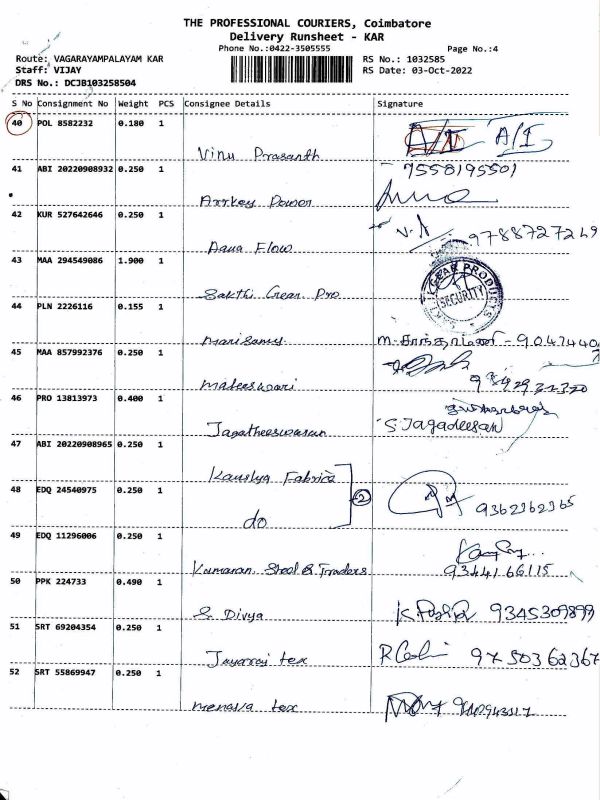 THE PROFESSIONAL COURIERS, Coimbatore
Delivery Runsheet - KAR
Phone No.:0422-3505555 Page No.:4
Route: VAGARAYAMPALAYAM KAR RS No.: 1032585
Staff: VIJAY RS Date: 03-Oct-2022
DRS No.: DCJB103258504
S No Consignment No Weight PCS Consignee Details Signature
40 POL 8582232 0.180 1 A/I A/I
Vinu Prasanth
41 ABI 20220908932 0.250 1 7558195501
Arrkey Power
42 KUR 527642646 0.250 1 V.A 9788727249
Aqua Flow
43 MAA 294549086 1.900 1 GEAR PRODUCTS SECURITY
Sakthi Gear Pro
44 PLN 2226116 0.155 1
Marisamy - 9047440
45 MAA 857992376 0.250 1
Maheeswari
46 PRO 13813973 0.400 1
Jagatheeswaran S Jagadeesan
47 ABI 20220908965 0.250 1
Kauslya Fabrics
48 EDQ 24540975 0.250 1 2 9362362365
do
49 EDQ 11296006 0.250 1
Kumaran Steel & Traders 9344166115
50 PPK 224733 0.490 1
S. Divya 9345309899
51 SRT 69204354 0.250 1
Jayaraj tex 9750362367
52 SRT 55869947 0.250 1
tex